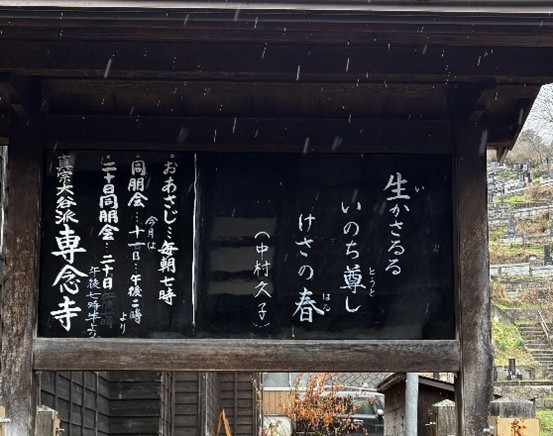 生かさるる
いのち尊し
けさの春
(中村久子)
・おあさじ…毎朝七時
・同朋会…十一日…午後二時より
今月は
・二十日同朋会…二十日
午後七時半より
真宗大谷派 専念寺